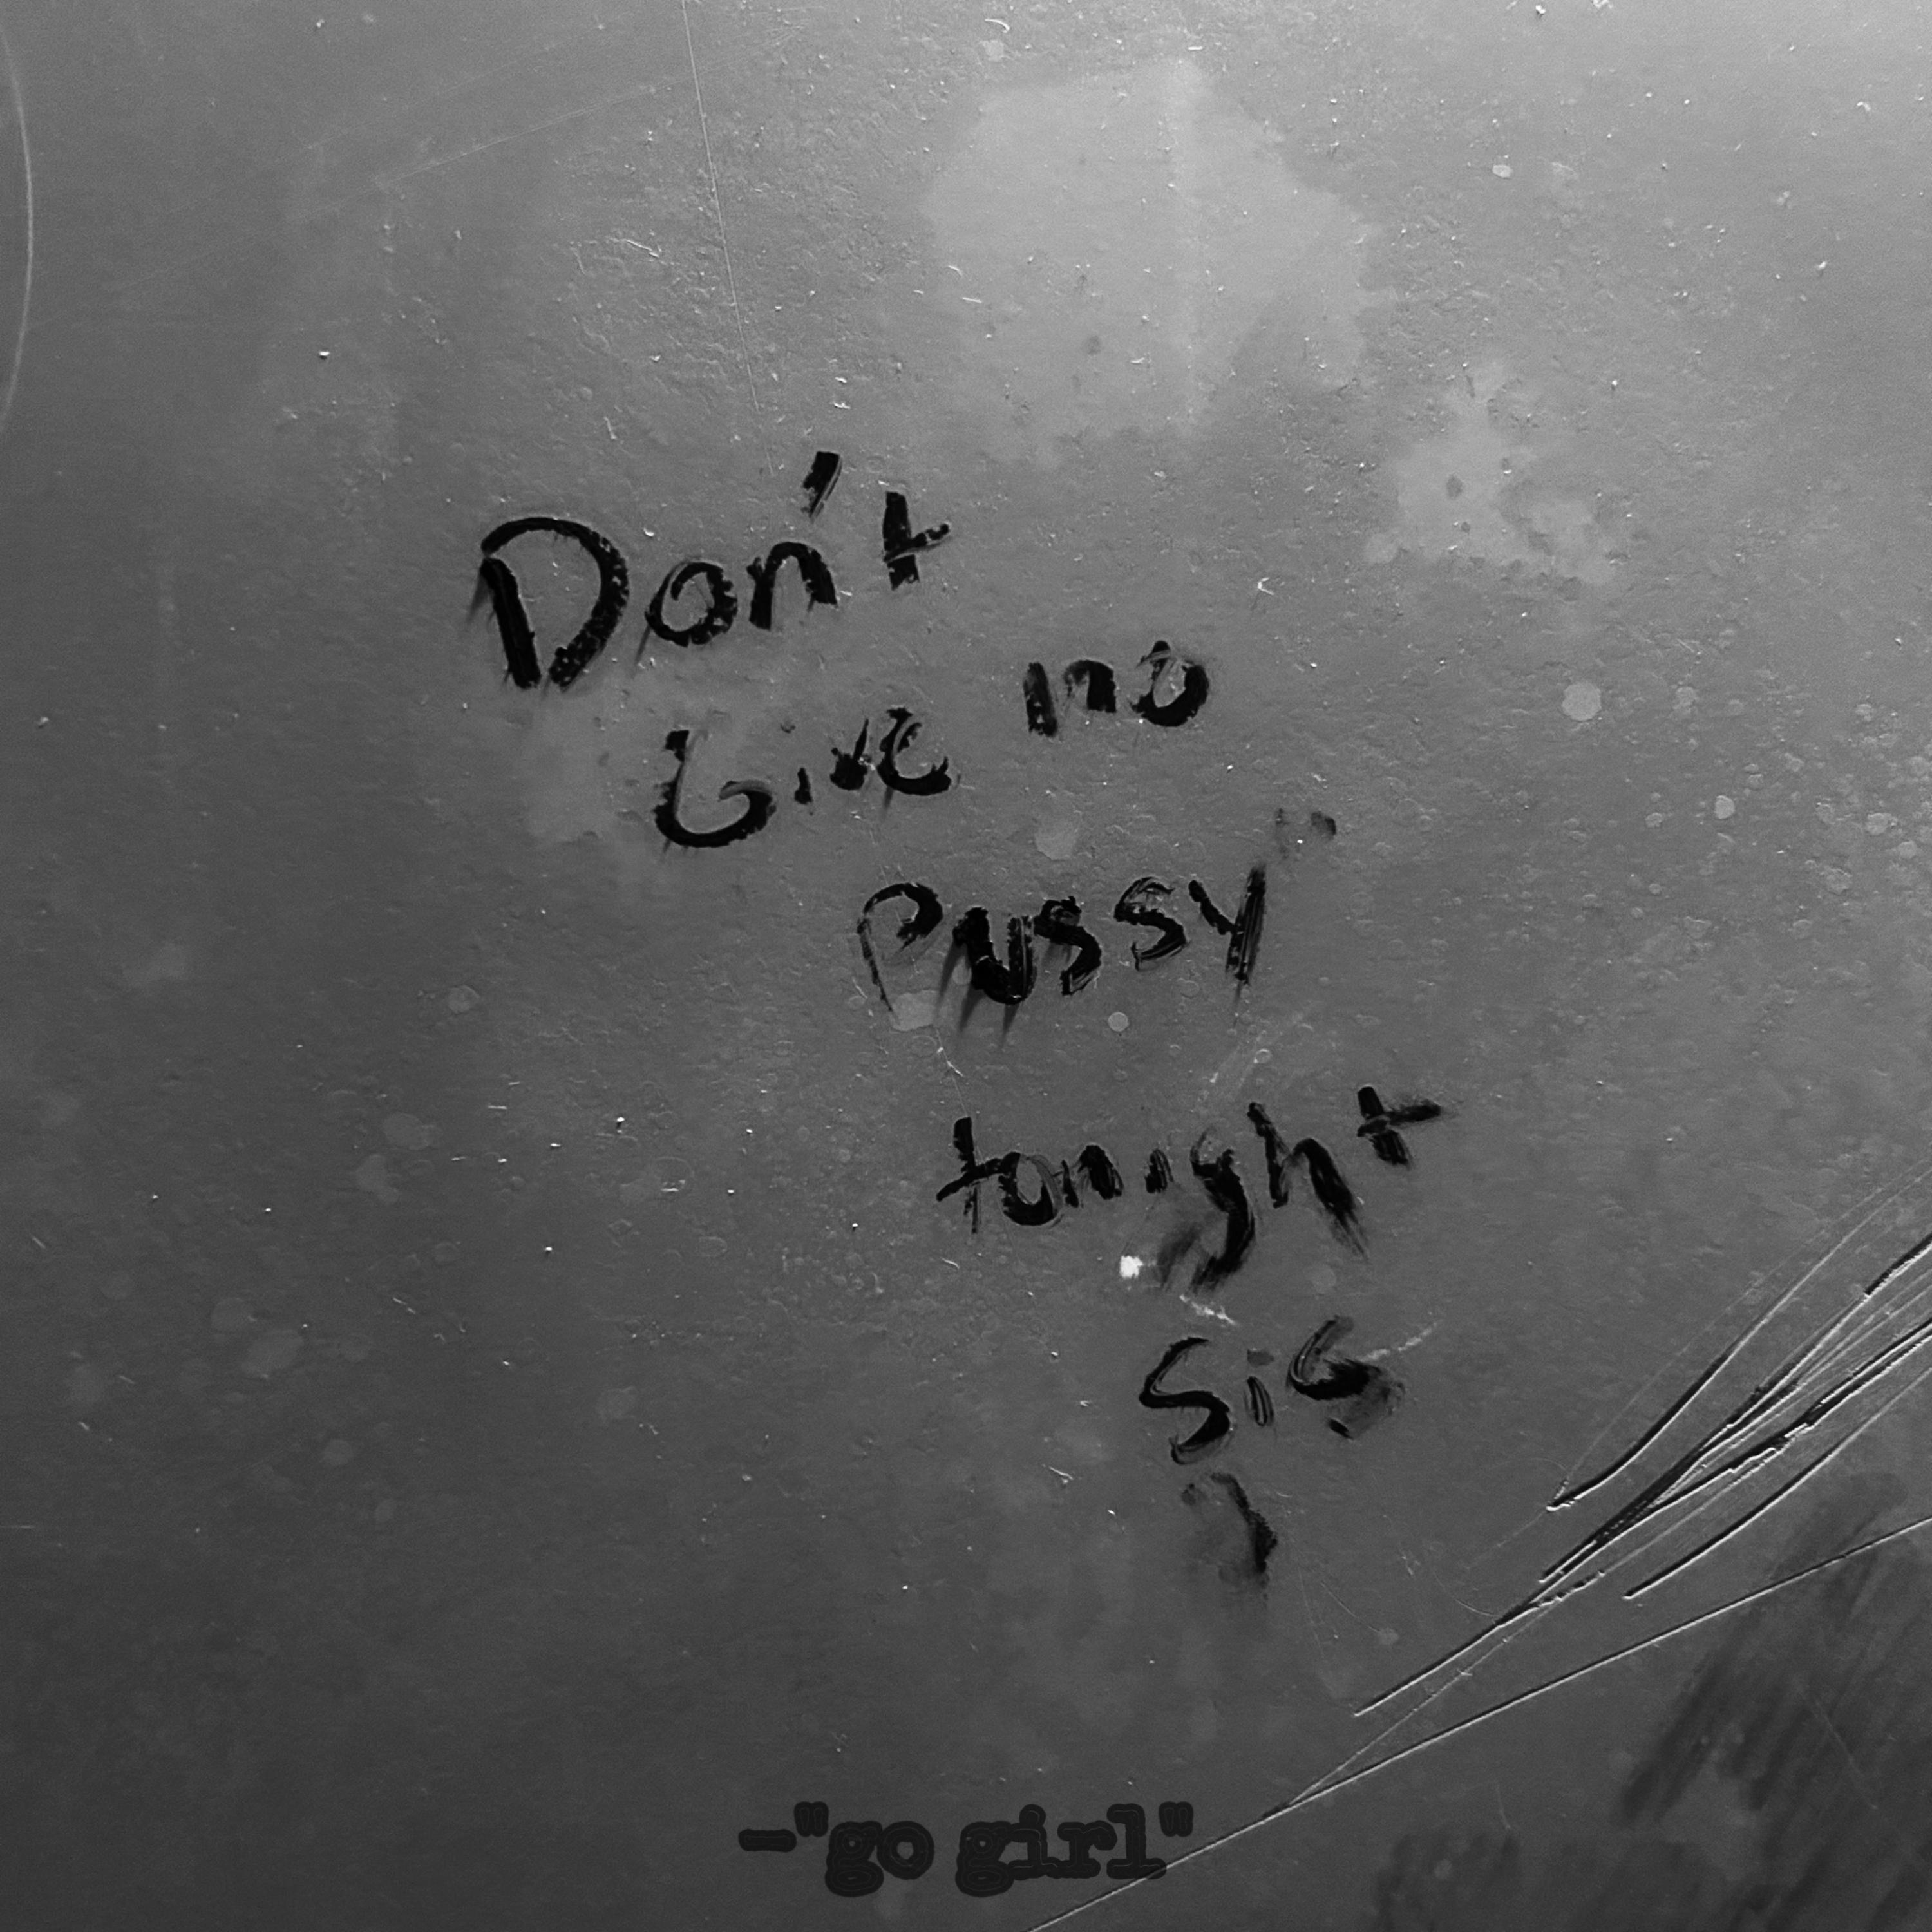 Don't
Give no
Pussy
tonight
Sis
-"go girl"